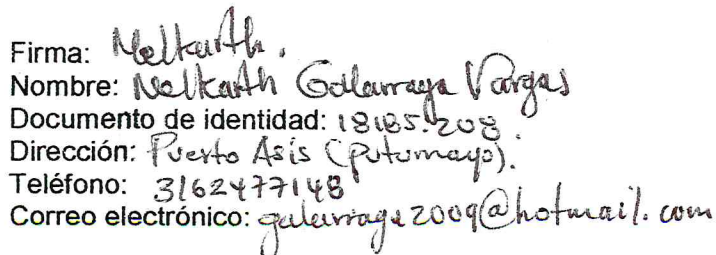 Firma: Melkarth.
Nombre: Melkarth Galarraga Vargas
Documento de identidad: 18185.208
Dirección: Puerto Asís (Putumayo).
Teléfono: 3162477148
Correo electrónico: galarraga2009@hotmail.com